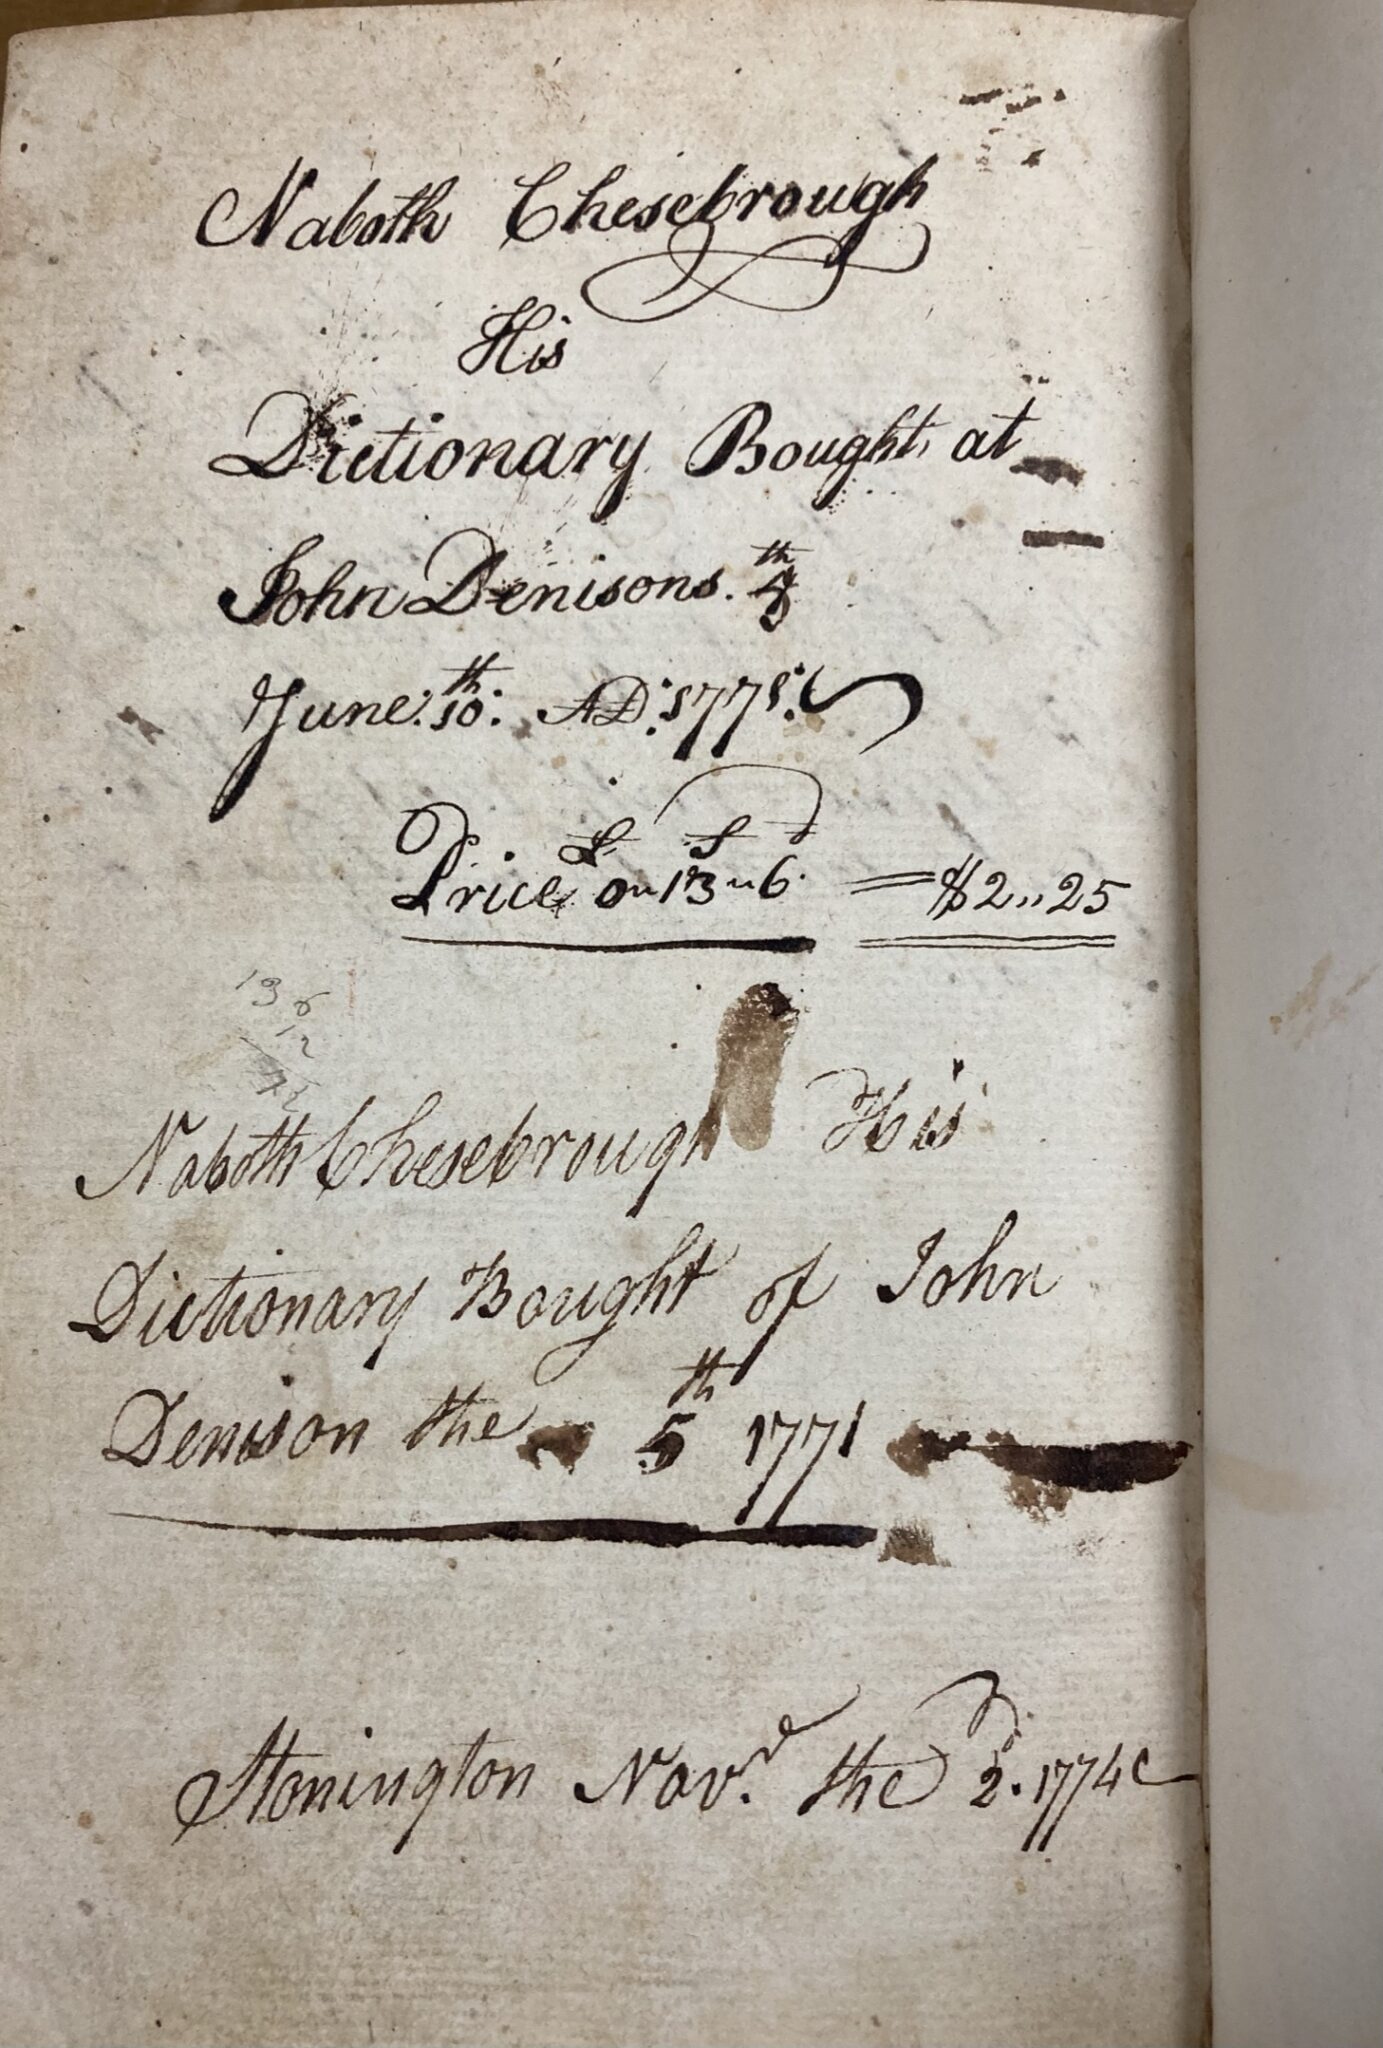 Naboth Chesebrough
His
Dictionary Bought at
John Denisons. th
June: 10th: AD: 1771:
L S D
Price 0 " 13 " 6 = $2,,25
13 6
12
Naboth Chesebrough His
Dictionary Bought of John
Denison the 5th 1771
Stonington Nov.r the 2d. 1774